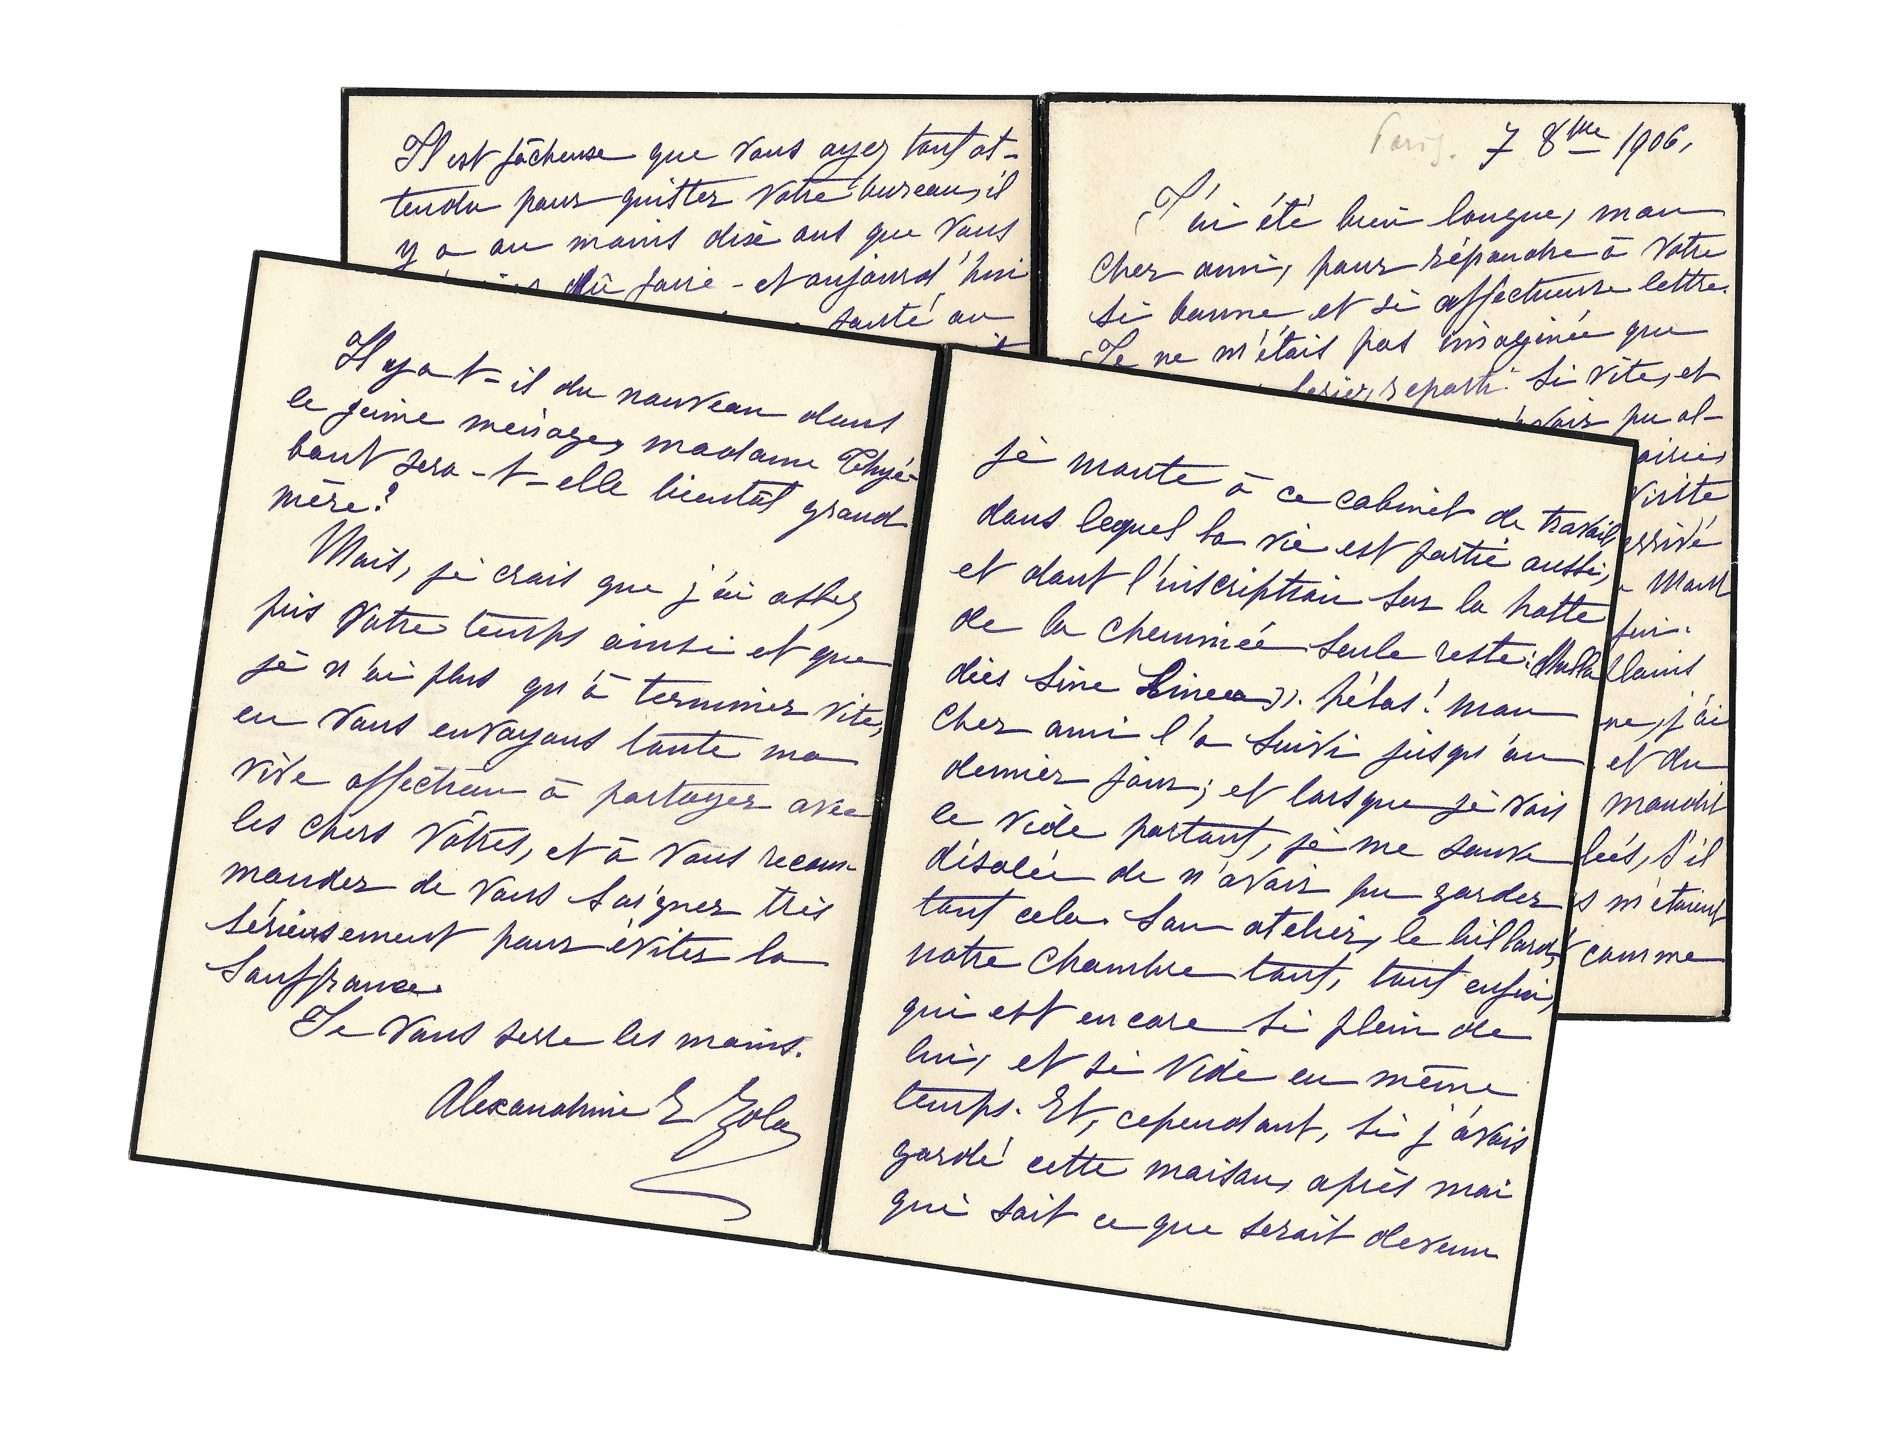 Paris. 7 8bre 1906.
J'ai été bien longue, mon
cher ami, pour répondre à votre
si bonne et si affectueuse lettre.
Je ne m'étais pas imaginée que
reparti si vite, et
avoir pu al-
visite
arrivé
ne, j'ai
et du
maudit
s'il
m'étaient
comme
Il est fâcheuse que vous ayez tant at-
tendu pour quitter votre bureau, il
y a au moins dix ans que vous
dû faire - et aujourd'hui
santé au
je monte à ce cabinet de travail,
dans lequel la vie est partie aussi,
et dont l'inscription sur la hotte
de la cheminée seule reste: «Nulla
dies sine linea». hélas! mon
cher ami l'a suivi jusqu'au
dernier jour; et lorsque je vois
le vide partout, je me sauve
désolée de n'avoir pu garder
tout cela. Son atelier, le billard,
notre chambre tout, tout enfin,
qui est encore si plein de
lui, et si vide en même
temps. Et, cependant, si j'avais
gardé cette maison, après moi
qui sait ce que serait devenu
Il y a t-il du nouveau dans
le jeune ménage, madame Thyé-
baut sera-t-elle bientôt grand
mère?
Mais, je crois que j'ai assez
pris votre temps ainsi et que
je n'ai plus qu'à terminer vite,
en vous envoyant toute ma
vive affection à partager avec
les chers vôtres, et à vous recom-
mander de vous soigner très
sérieusement pour éviter la
souffrance.
Je vous serre les mains.
Alexandrine E Zola